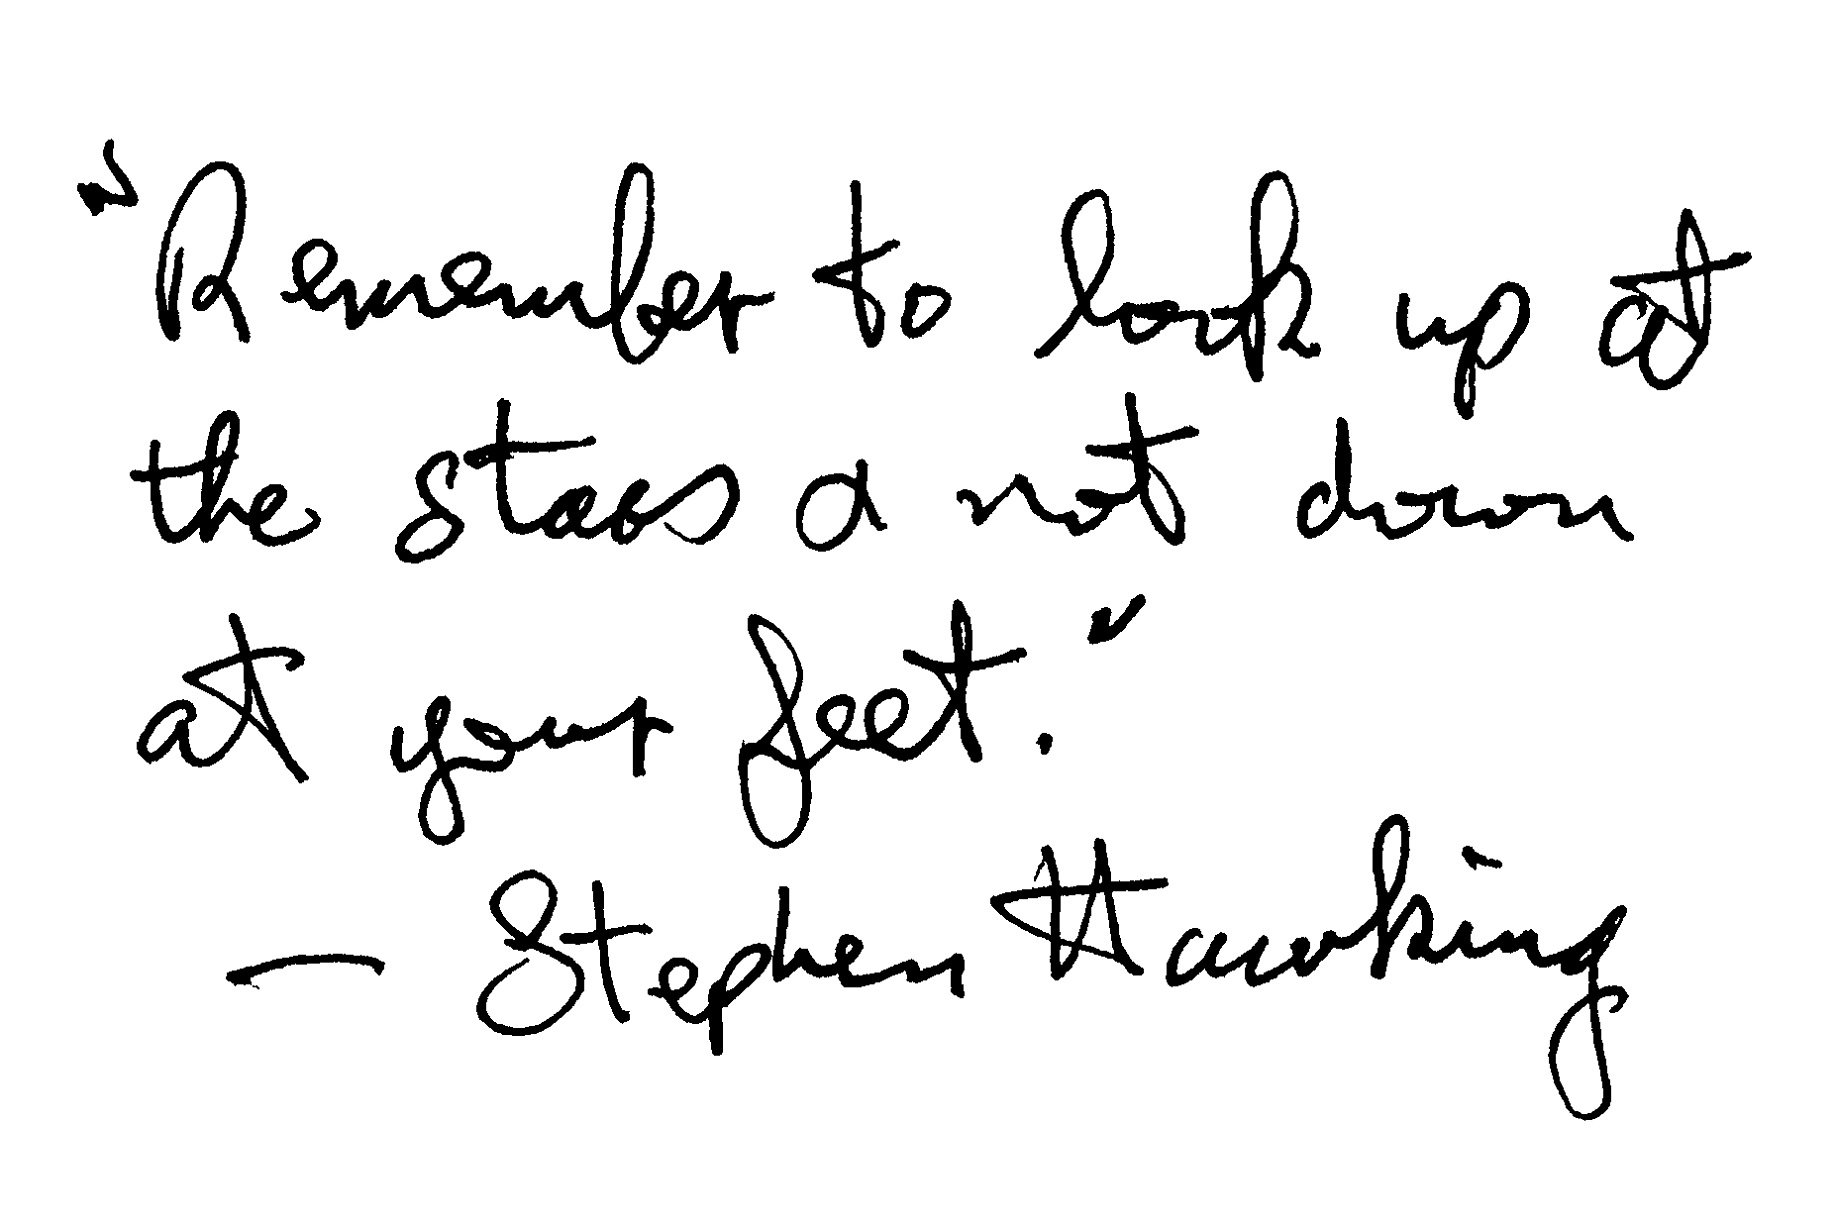 "Remember to look up at
the stars & not down
at your feet."
— Stephen Hawking